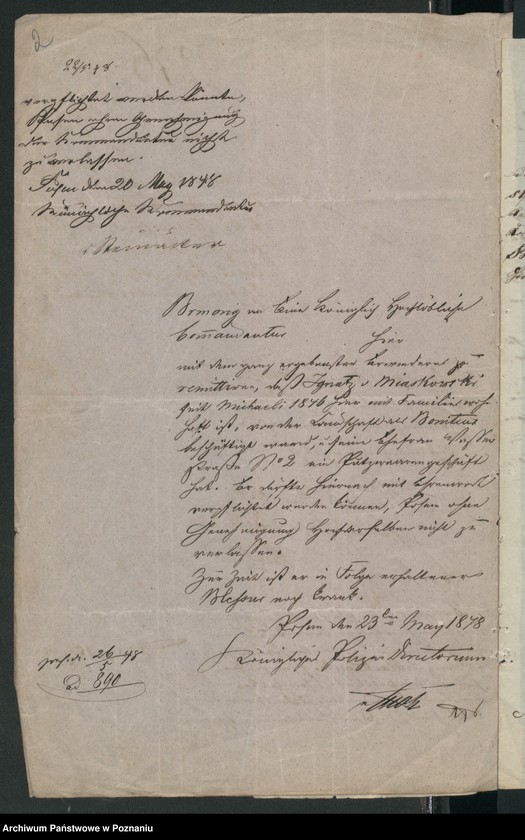 2
22/5 48
verpflichtet werden könnte,
Posen ohne Genehmigung
der Kommandantur nicht
zu verlassen.
Posen den 20 May 1848
Königliche Kommandantur
Steinäcker
Brmorig an Eine Königlich Hochlöbliche
Commandantur Hier
mit dem ganz ergebensten Erwiedern zu
remittiren, daß Ignatz v Miaskowski
seit Michaeli 1846 hier mit Familie wohn
haft ist, von der Landschaft als Boniteur
beschäftigt ward, u seine Ehefrau
straße No 2 ein Putzwaarengeschäft
hat. Er dürfte hiernach mit Ehrenwort
verpflichtet werden können, Posen ohne
Genehmigung Hochderselben nicht zu
verlassen.
Zur Zeit ist er in Folge erhaltener
Blessur noch krank.
Posen den 23ten May 1848
Königliches Polizei Directorium
26/5 48
890
Archiwum Państwowe w Poznaniu